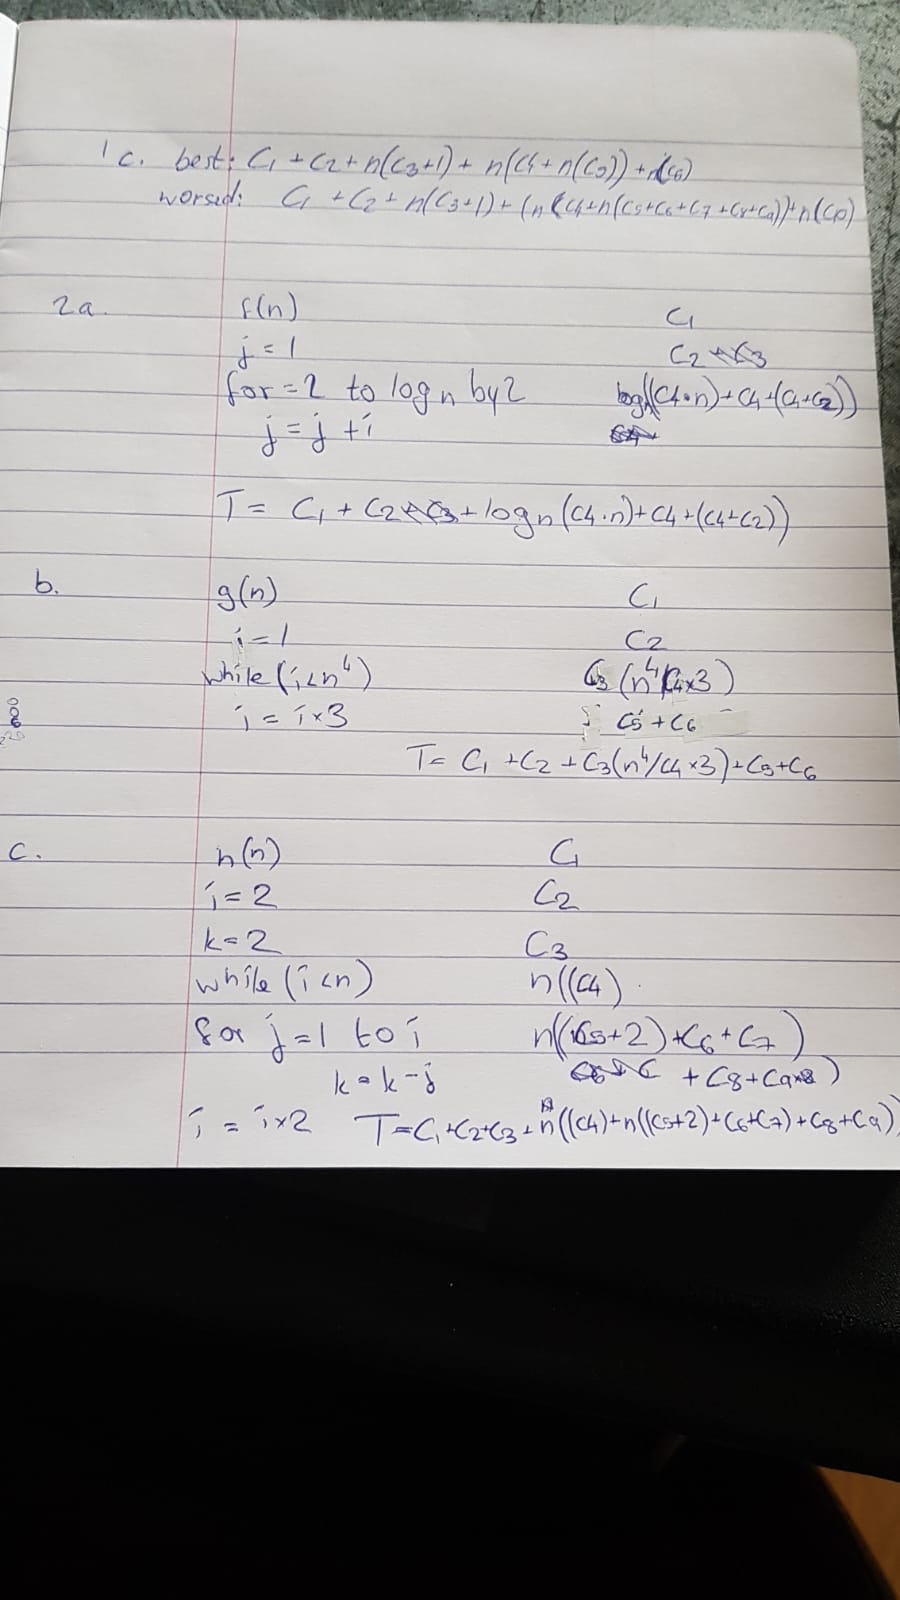 1c. best: C1 + C2 + n(C3+1) + n(C4 + n(C5)) + n(C6)
worsed: C1 + C2 + n(C3+1) + (n(C4+n(C5+C6+C7+C8+C9))+n(C10)
2a. f(n) C1
j = 1 C2
for = 2 to log n by 2 log n((C4·n)+C4+(C4+C2))
j = j + i
T = C1 + C2 + log n (C4·n)+C4+(C4+C2))
b. g(n) C1
i = 1 C2
while (i<n⁴) C3 (n⁴/C4×3)
i = i×3 C5 + C6
T= C1 + C2 + C3(n⁴/C4×3)+C5+C6
c. h(n) C1
i = 2 C2
k = 2 C3
while (i<n) n((C4)
for j=1 to i n((C5+2)+C6+C7)
k = k-j + C8+C9)
i = i×2 T=C1+C2+C3+n((C4)+n((C5+2)+C6+C7)+C8+C9))